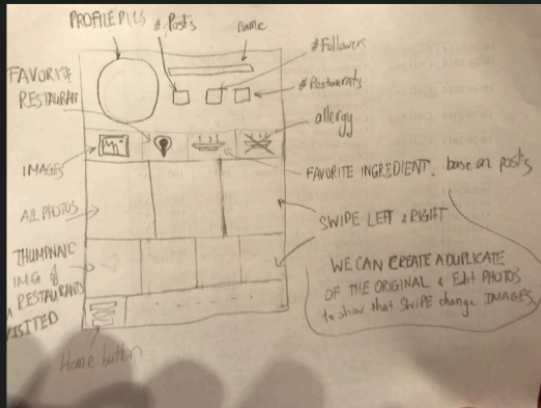 PROFILE PICS
#Posts
name
#Followers
#Restaurants
FAVORITE
RESTAURANT
allergy
IMAGES
FAVORITE INGREDIENT. base on posts
ALL PHOTOS
SWIPE LEFT & RIGHT
THUMPNAIL
IMG of
RESTAURANTS
VISITED
WE CAN CREATE A DUPLICATE
OF THE ORIGINAL & Edit PHOTOS
to show that SWIPE change IMAGES
Home button